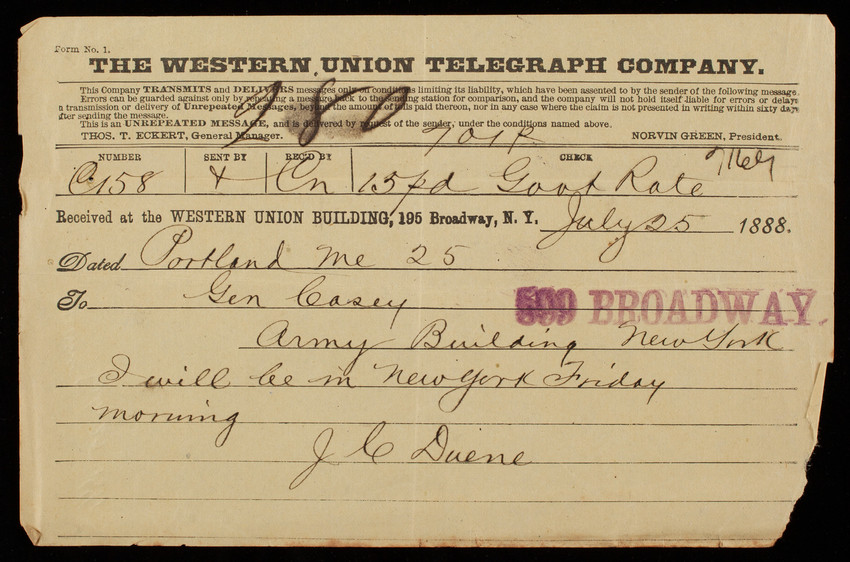 Form No. 1.
THE WESTERN UNION TELEGRAPH COMPANY.
This Company TRANSMITS and DELIVERS messages only on conditions limiting its liability, which have been assented to by the sender of the following message.
Errors can be guarded against only by repeating a message back to the sending station for comparison, and the company will not hold itself liable for errors or delays
in transmission or delivery of Unrepeated Messages, beyond the amount of tolls paid thereon, nor in any case where the claim is not presented in writing within sixty days
after sending the message.
This is an UNREPEATED MESSAGE, and is delivered by request of the sender, under the conditions named above.
THOS. T. ECKERT, General Manager. NORVIN GREEN, President.
280
NUMBER SENT BY REC'D BY CHECK
C158 Cn 15 pd Govt Rate
Received at the WESTERN UNION BUILDING, 195 Broadway, N. Y. July 25 1888.
Dated Portland Me 25
To Gen Casey
599 BROADWAY.
Army Building New York
I will be in New York Friday
morning
J C Duene